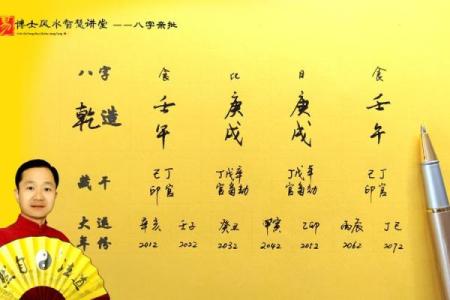 博士风水智慧讲堂 ——八字亲批
八字 食 比 日 食
乾造 壬午 庚戌 庚戌 壬午
藏干 己丁 丁戊辛 丁戊辛 己丁
印官 官枭劫 官枭劫 印官
大运 辛亥 壬子 癸丑 甲寅 乙卯 丙辰 丁巳
年份 2012 2022 2032 2042 2052 2062 2072